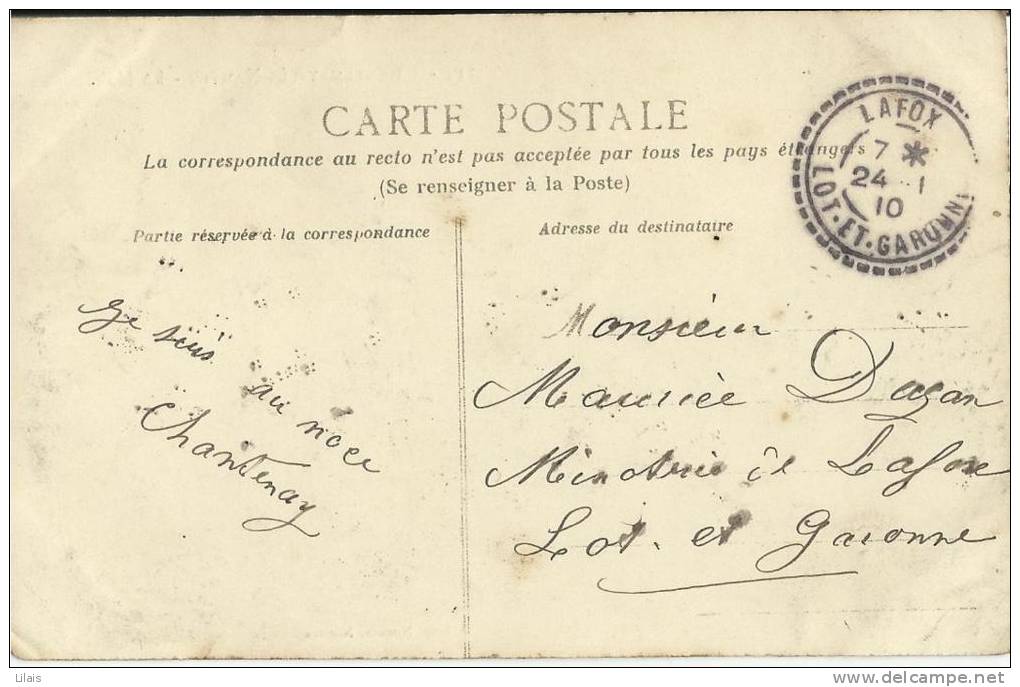 CARTE POSTALE
La correspondance au recto n'est pas acceptée par tous les pays étrangers
(Se renseigner à la Poste)
LAFOX
7 *
24 - 1
10
LOT-ET-GARONN
Partie réservée à la correspondance
Je suis
au noce
Chantenay
Adresse du destinataire
Monsieur
Maurice Dazan
Minoterie de Lafox
Lot. et Garonne
Lilais
www.delcampe.net